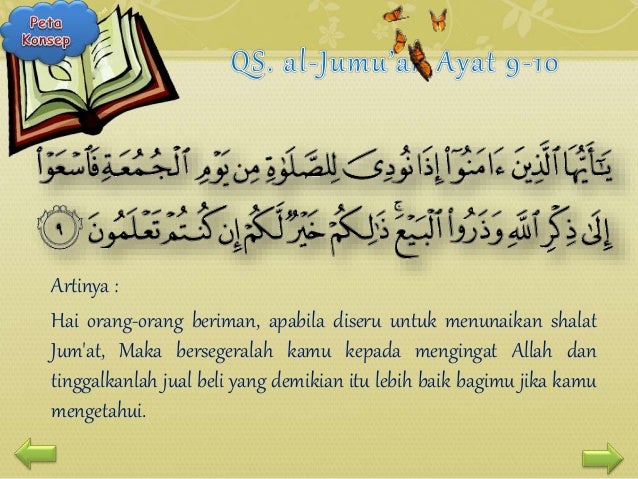 Peta
Konsep
QS. al-Jumu'ah Ayat 9-10
يَـٰٓأَيُّهَا ٱلَّذِينَ ءَامَنُوٓا۟ إِذَا نُودِىَ لِلصَّلَوٰةِ مِن يَوْمِ ٱلْجُمُعَةِ فَٱسْعَوْا۟
إِلَىٰ ذِكْرِ ٱللَّهِ وَذَرُوا۟ ٱلْبَيْعَ ۚ ذَٰلِكُمْ خَيْرٌ لَّكُمْ إِن كُنتُمْ تَعْلَمُونَ ٩
Artinya :
Hai orang-orang beriman, apabila diseru untuk menunaikan shalat
Jum'at, Maka bersegeralah kamu kepada mengingat Allah dan
tinggalkanlah jual beli yang demikian itu lebih baik bagimu jika kamu
mengetahui.